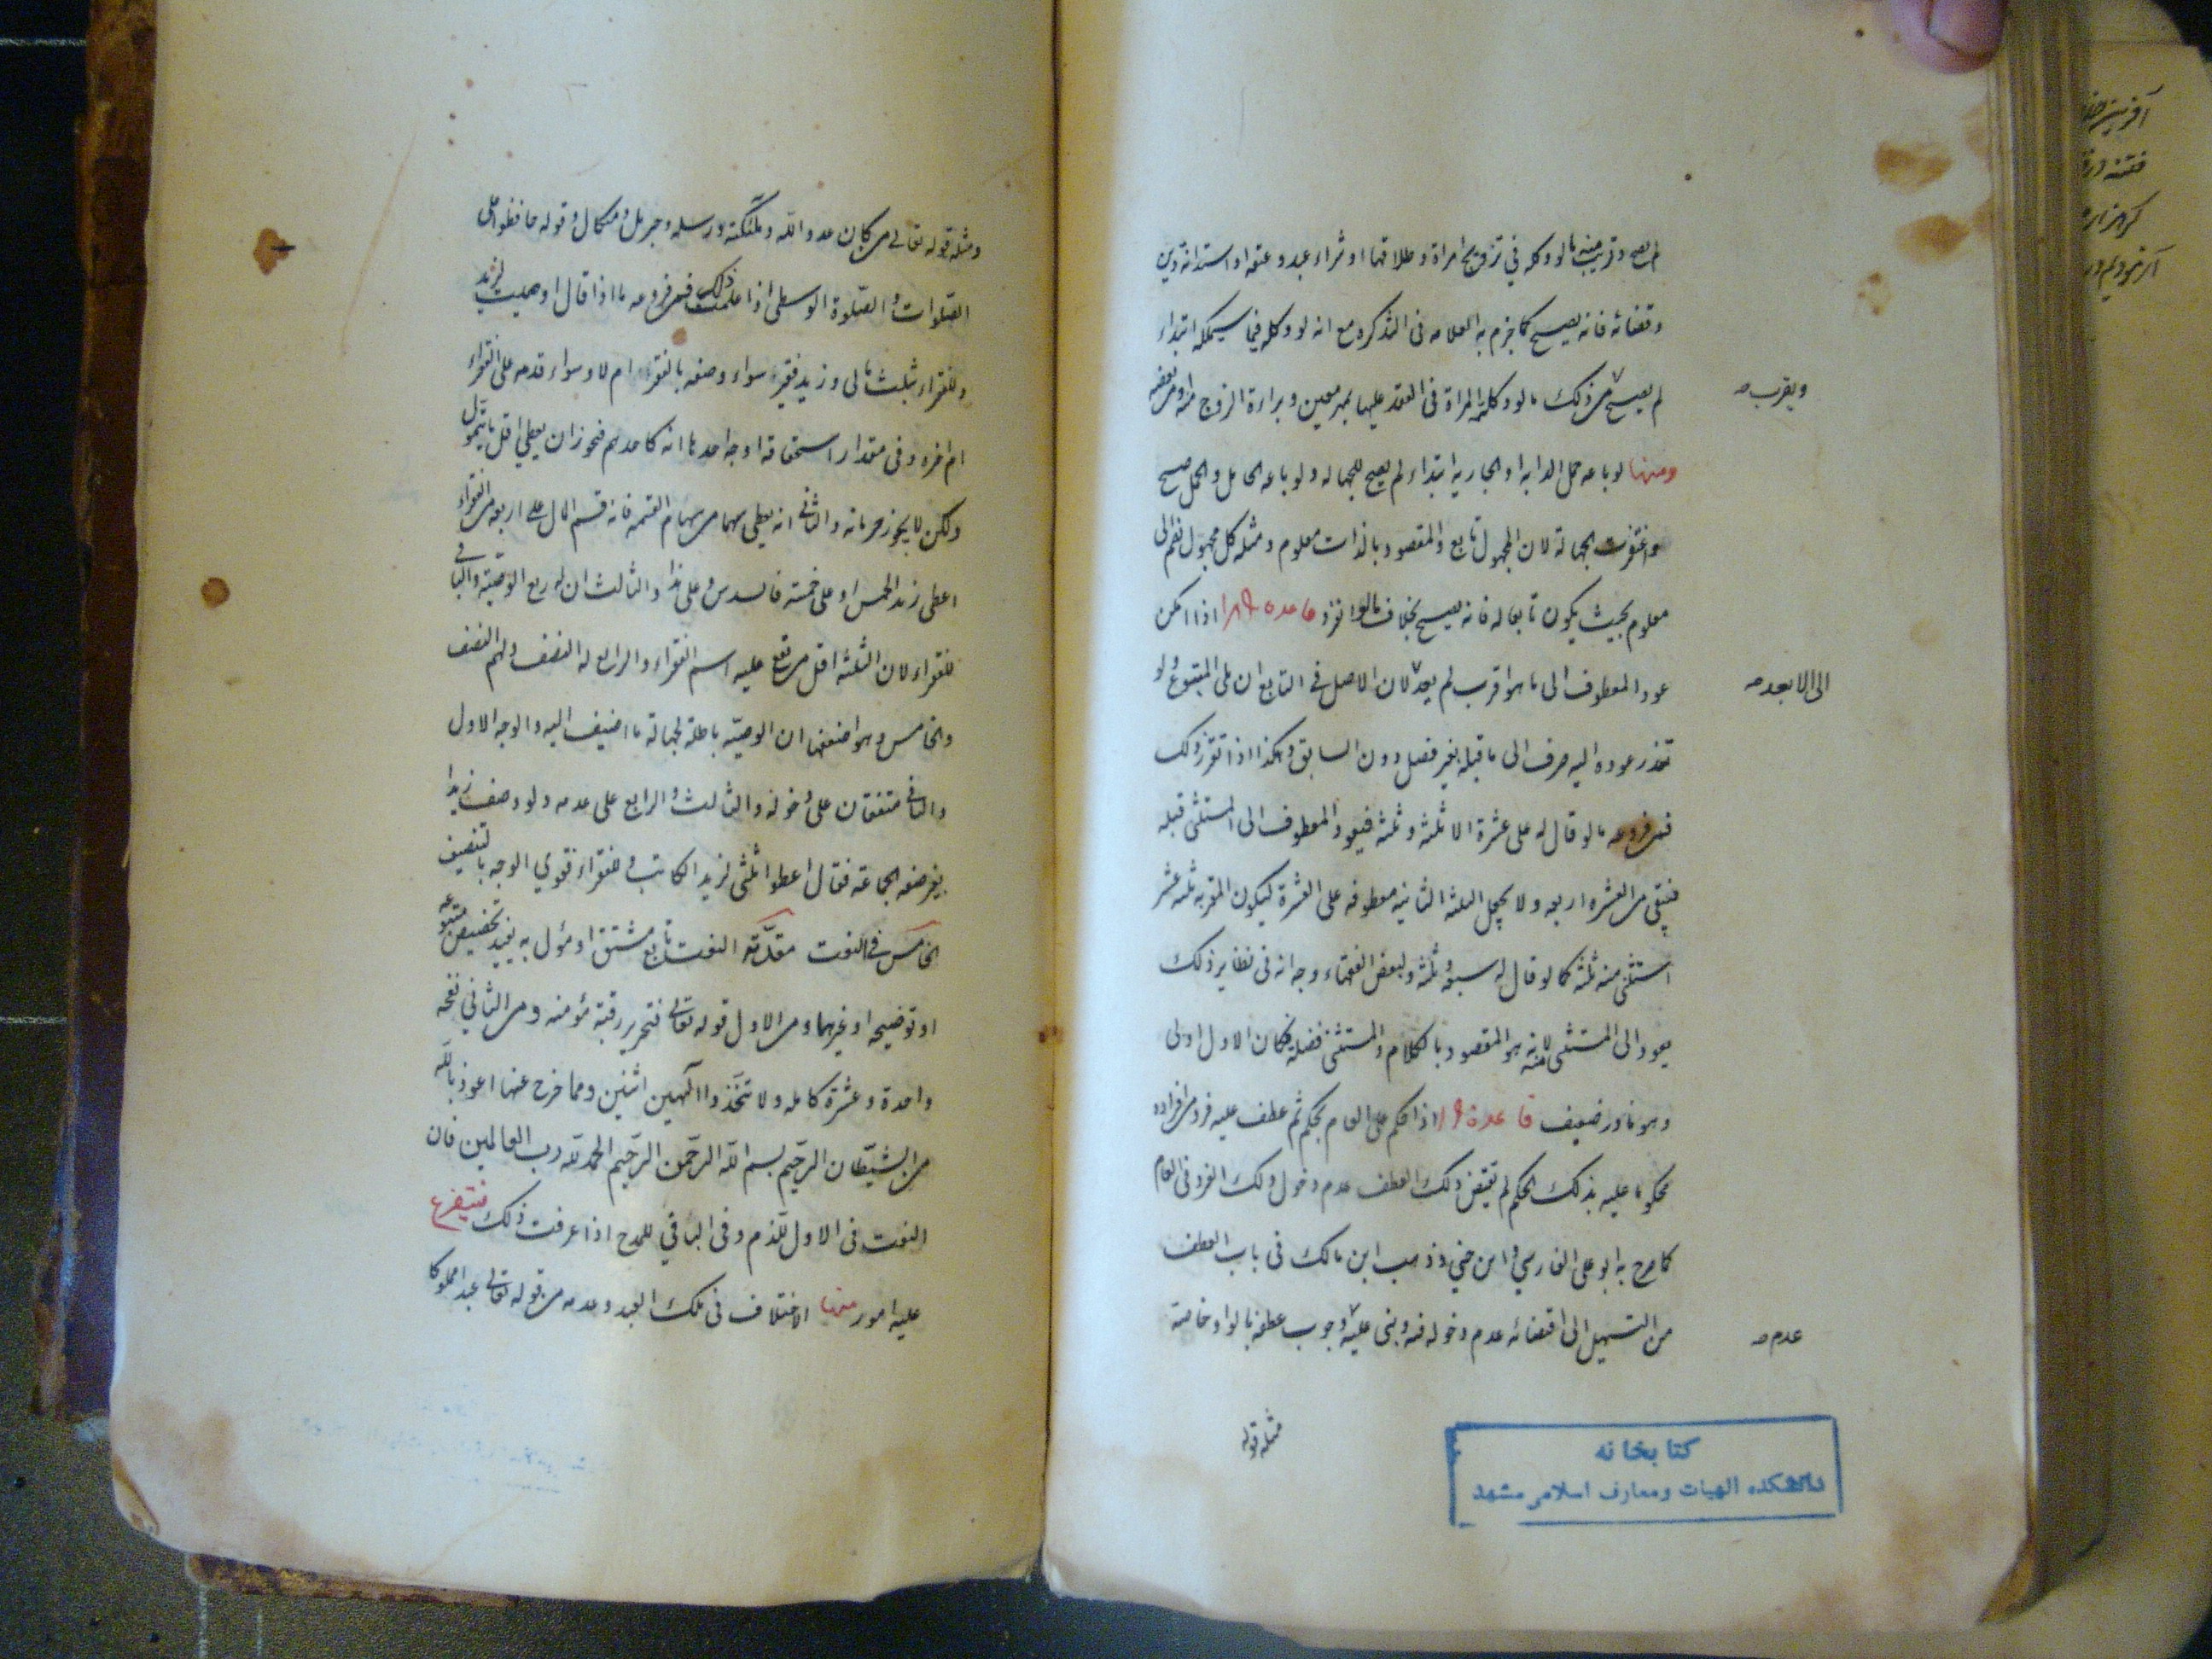 لم يصح وقريب منه ما لو وكله في تزويج امراة وطلاقها او شراء عبد وعتقه او استدانة دين
وقضائه فانه يصح كما جزم به العلامه فى التذكره مع انه لو وكله فيما سيملكه ابتداء
لم يصح من ذلك ما لو وكلته المراة فى العقد عليها بمهر معين وبراءة الزوج منه او من بعضه
ويقرب صح
ومنها لو باعه حمل الدابه او الجاريه ابتداء لم يصح للجهاله ولو باعه الحامل والحمل صح
واغتفرت الجهالة لان المجهول تابع والمقصود بالذات معلوم ومثله كل مجهول انضم الى
معلوم بحيث يكون تابعا له فانه يصح بخلاف ما لو انفرد قاعده اذا امكن
عود المعطوف الى ما هو اقرب لم يعد لان الاصل في التابع ان يلى المتبوع ولو
الى الابعد صح
تعذر عوده اليه صرف الى ما قبله بغير فصل دون السابق وهكذا اذا تقرر ذلك
فمن فروعه ما لو قال له على عشرة الا ثلثة وثلثة فيعود المعطوف الى المستثنى قبله
فيبقى من العشره اربعه ولا يجعل الثلثة الثانيه معطوفه على العشرة ليكون المقر به ثلثه عشر
استثنى منه ثلثة كما لو قال له سبعة وثلثة ولبعض الفقهاء وجه انه فى نظاير ذلك
يعود الى المستثنى منه لانه هو المقصود بالكلام والمستثنى فضلة فكان الاول اولى
وهو نادر ضعيف قاعدة اذا حكم على العام بحكم ثم عطف عليه فرد من افراده
محكوما عليه بذلك الحكم لم يقتض ذلك العطف عدم دخول ذلك الفرد فى العام
كما صرح به ابو على الفارسي وابن جني وذهب ابن مالك فى باب العطف
من التسهيل الى اقتضائه عدم دخوله فيه وبنى عليه وجوب عطفه بالواو خاصة
عدم صح
مثله قوله
كتابخانه
دانشكده الهيات ومعارف اسلامى مشهد
ومثله قوله تعالى من كان عدوا لله وملئكته ورسله وجبريل وميكال وقوله حافظوا على
الصلوات والصلوة الوسطى اذا علمت ذلك فمن فروعه ما اذا قال اوصيت لزيد
وللفقراء بثلث مالى وزيد فقير سواء وصفه بالفقر ام لا وسواء قدمه على الفقراء
ام اخره وفى مقدار استحقاقه اوجه احدها انه كاحدهم فيجوز ان يعطي اقل ما يتمول
ولكن لا يجوز حرمانه والثاني انه يعطى سهما من سهام القسمه فانه قسم المال على اربعه من الفقراء
اعطى زيد الخمس او على خمسة فالسدس وعلى هذا والثالث ان له ربع الوصيّة والباقي
للفقراء لان الثلثة اقل من يقع عليه اسم الفقراء والرابع له النصف ولهم النصف
والخامس وهو اضعفها ان الوصيّة باطلة لجهالة ما اضيف اليه والوجه الاول
والثاني متفقان على دخوله والثالث والرابع على عدمه ولو وصف زيدا
بغير صفه الجماعة فقال اعطوا ثلثى لزيد الكاتب وللفقراء فقوي الوجه بالتنصيف
الخامس في النعت مقدّمة النعت تابع مشتق او مؤل به يفيد تخصيص متبوعه
او توضيحه او غيرهما ومن الاول قوله تعالى فتحرير رقبة مؤمنه ومن الثاني نفخه
واحدة وعشرة كامله ولا تتخذوا الهين اثنين ومما خرج عنها اعوذ بالله
من الشيطان الرجيم بسم الله الرحمن الرحيم الحمد لله رب العالمين فان
النعت فى الاول للذم وفى الباقي للمدح اذا عرفت ذلك فيتفرع
عليه امور منها الاختلاف فى ملك العبد وعدمه من قوله تعالى عبدا مملوكا